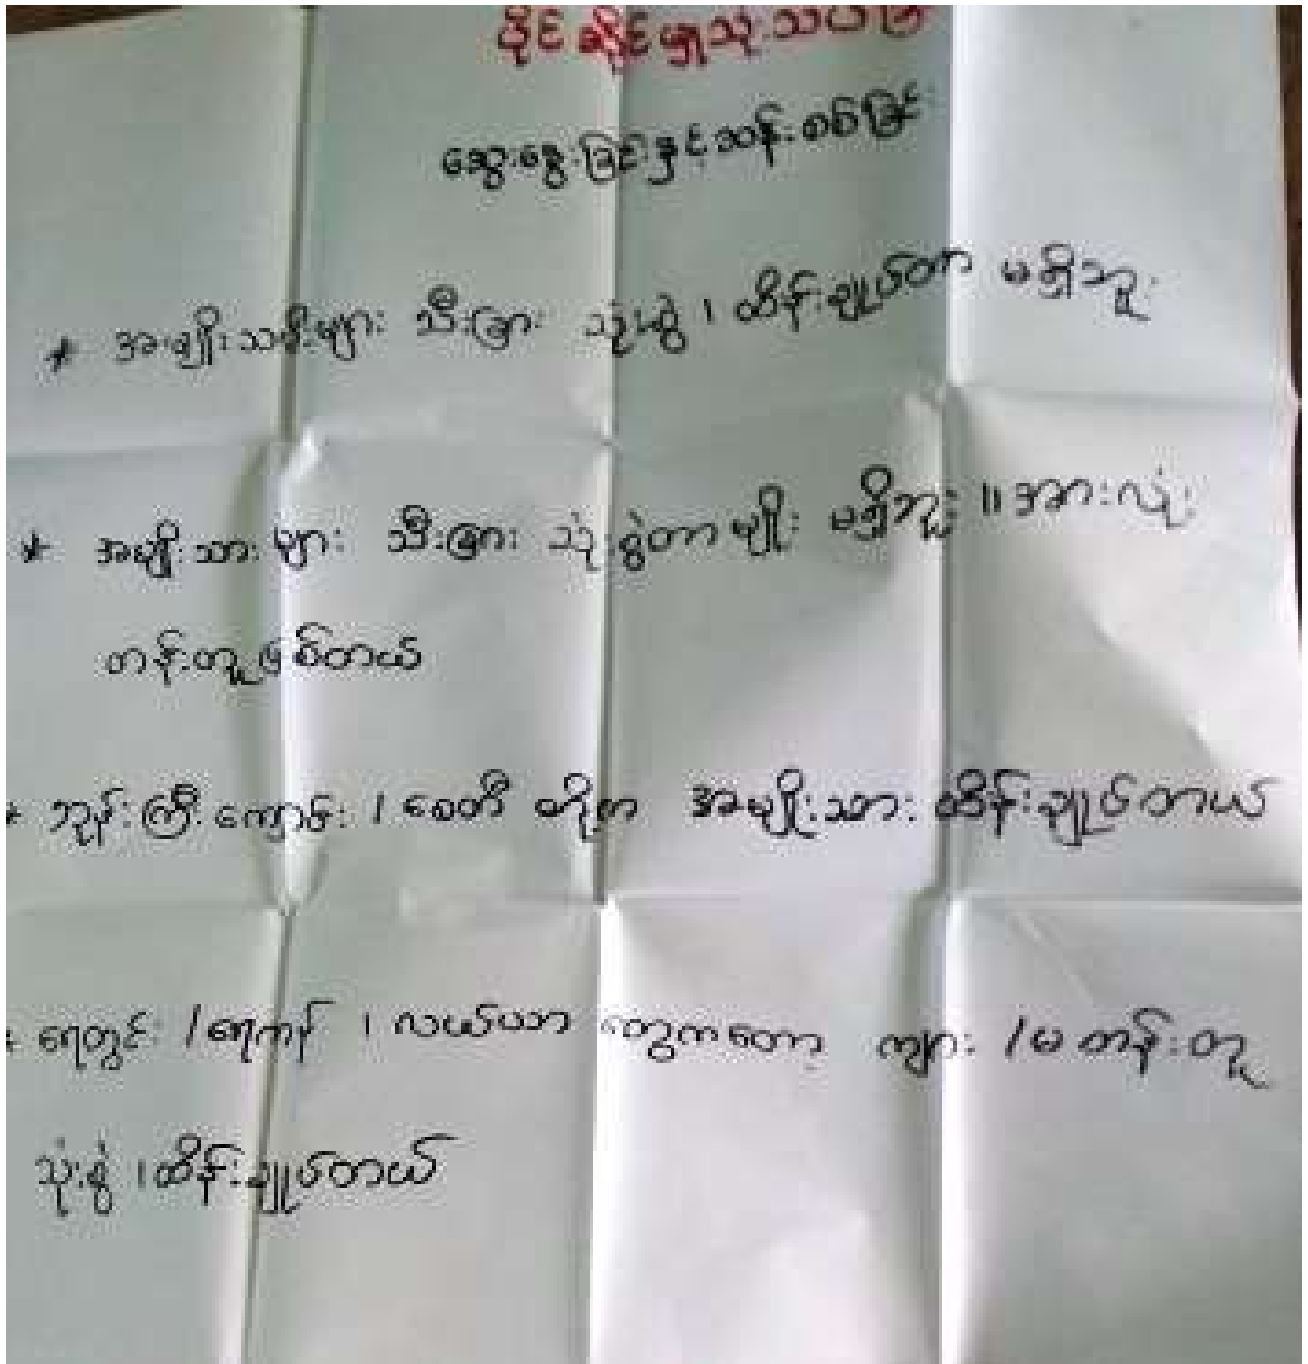 ပိုင်ဆိုင်မှုသုံးသပ်
ဆွေးနွေးခြင်းနှင့်ဆန်းစစ်ခြင်း
* အမျိုးသမီးများ သီးခြား သုံးစွဲ ၊ ထိန်းချုပ်တာ မရှိဘူး
* အမျိုးသားများ သီးခြား သုံးစွဲတာမျိုး မရှိဘူး ။ အားလုံး
တန်းတူဖြစ်တယ်
* ဘုန်းကြီးကျောင်း / စေတီ တို့က အမျိုးသား ထိန်းချုပ်တယ်
* ရေတွင်း / ရေကန် ၊ လယ်ယာ တွေကတော့ ကျား / မ တန်းတူ
သုံးစွဲ ၊ ထိန်းချုပ်တယ်